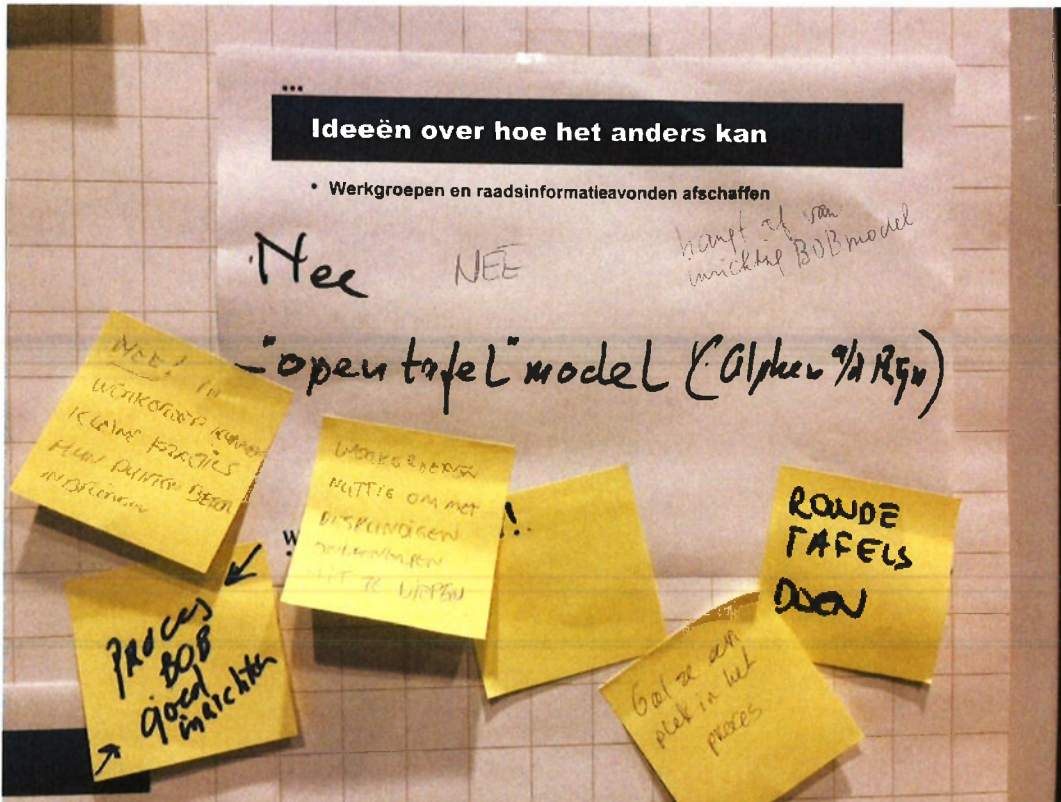 Ideeën over hoe het anders kan
• Werkgroepen en raadsinformatieavonden afschaffen
Nee
NEE
hangt af van
inrichting BOB model
- "open tafel" model (Alphen a/d Rijn)
NEE! in
WERKGROEP KUNNEN
KLEINE FRACTIES
HUN PUNTEN BETER
INBRENGEN
WERKGROEPEN
NUTTIG OM MET
DESKUNDIGEN
ONDERWERPEN
UIT TE DIEPEN
W
!.
RONDE
TAFELS
DOEN
PROCES
BOB
goed
inRichten
Geef ze een
plek in het
proces